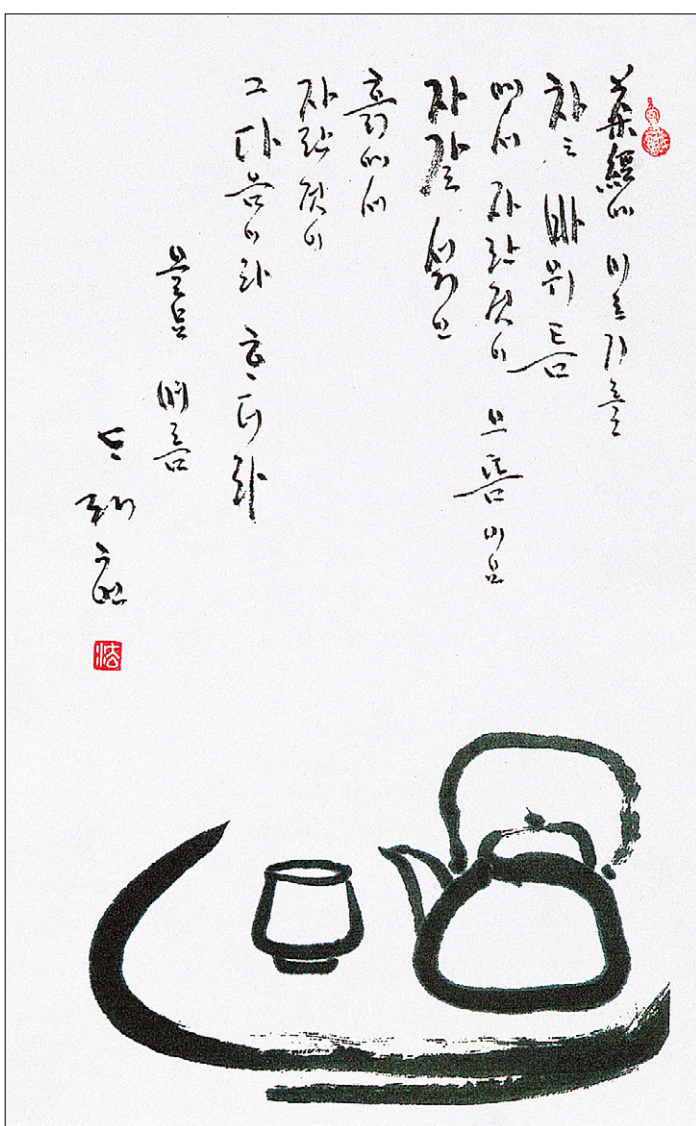 茶經에 이르기를
차는 바위틈
에서 자란것이 으뜸이요
자갈 섞인
흙에서
자란것이
그 다음이라 하더라
여름